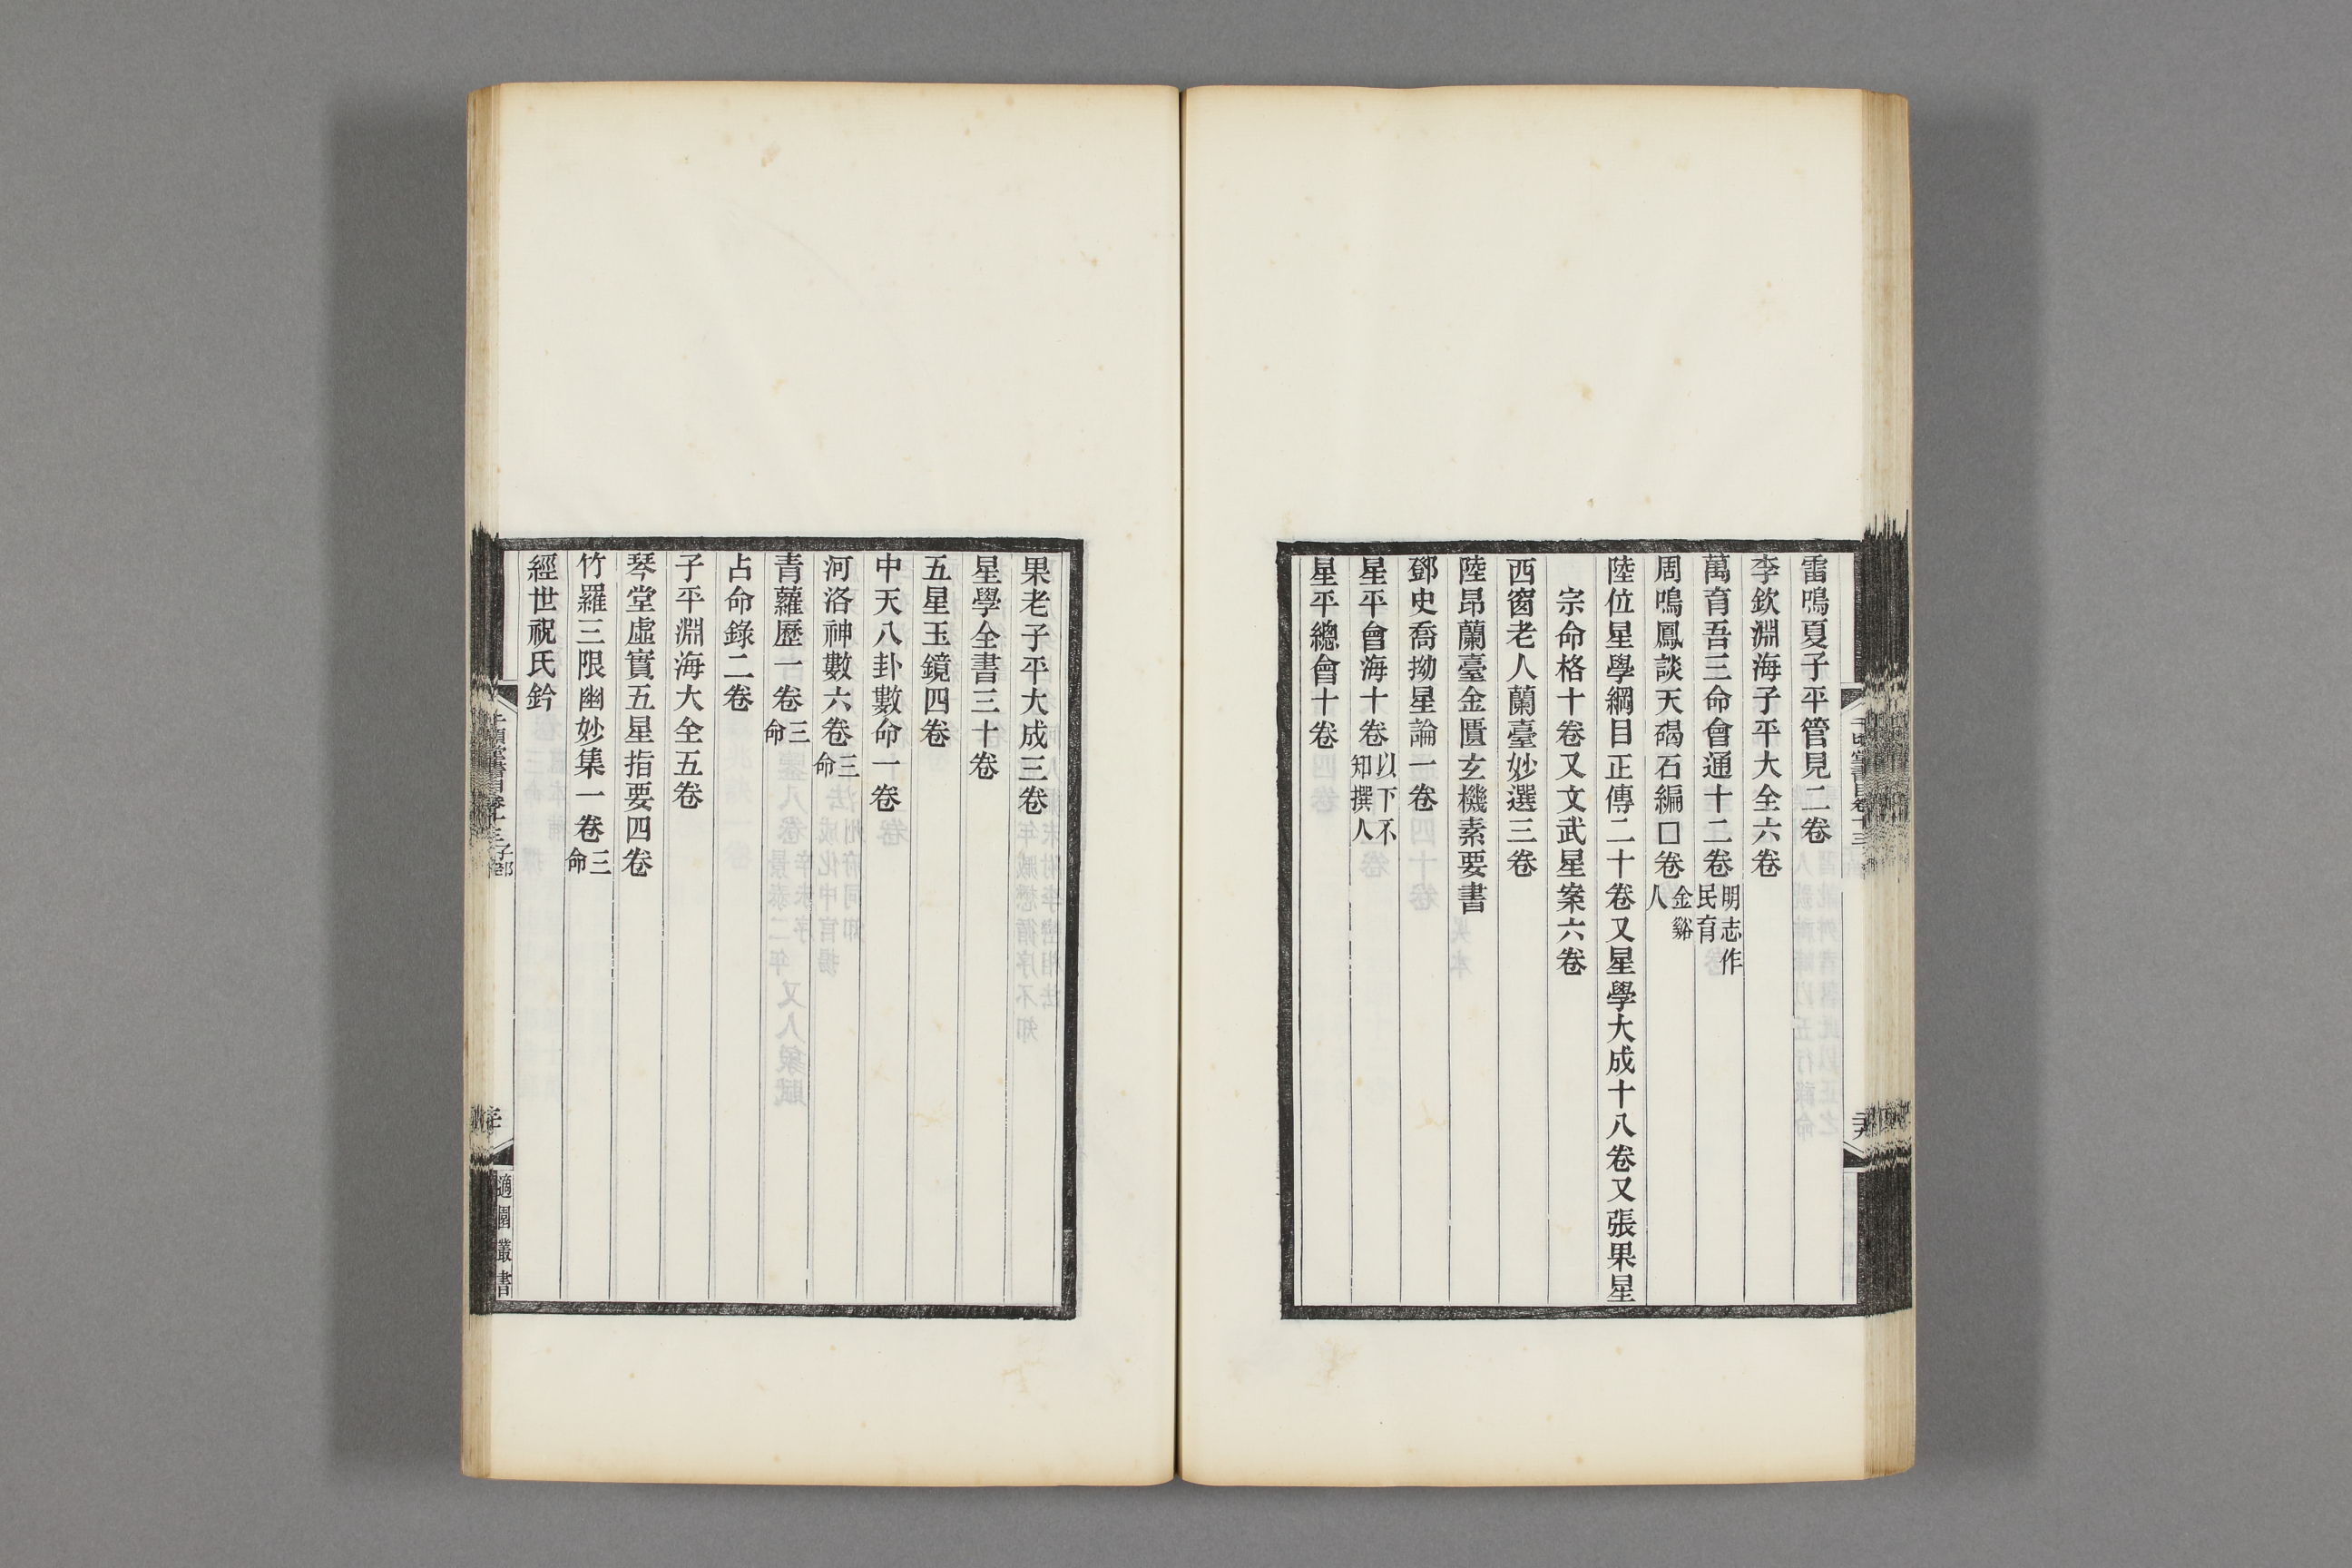 雷鳴夏子平管見二卷
李欽淵海子平大全六卷
萬育吾三命會通十二卷明志作民育
周鳴鳳談天碣石編□卷金谿人
陸位星學綱目正傳二十卷又星學大成十八卷又張果星
宗命格十卷又文武星案六卷
西窗老人蘭臺妙選三卷
陸昂蘭臺金匱玄機素要書
鄧史喬拗星論一卷
星平會海十卷以下不知撰人
星平總會十卷
果老子平大成三卷
星學全書三十卷
五星玉鏡四卷
中天八卦數命一卷
河洛神數六卷三命
青蘿歷一卷三命
占命錄二卷
子平淵海大全五卷
琴堂虛實五星指要四卷
竹羅三限幽妙集一卷三命
經世祝氏鈐
千頃堂書目卷十三子部
適園叢書